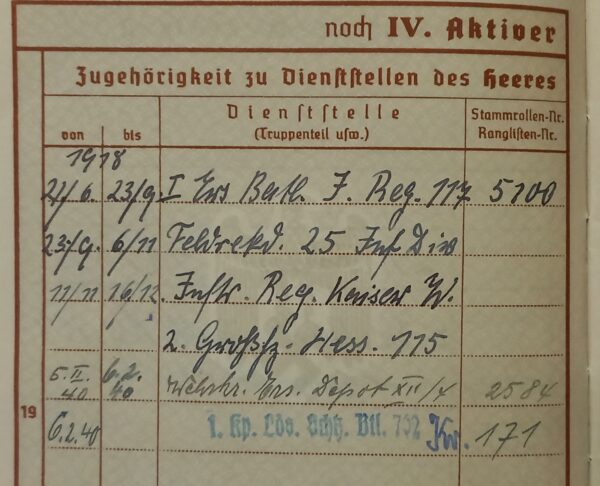 noch IV. Aktiver
Zugehörigkeit zu Dienststellen des Heeres
von bis Dienststelle (Truppenteil usw.) Stammrollen-Nr. Ranglisten-Nr.
1918
21/6. 23/9. I Ers Batl. J. Reg. 117 5100
23/9. 6/11 Feldrekd. 25 Inf Div
11/11 16/12. Inftr. Reg. Kaiser W.
2. Großhz. Hess. 115
5.II.40 6.2.40 Wehrkr. Ers. Depot XII/4 2584
19
6.2.40 1. Kp. Lds. Schtz. Btl. 732 Kr. 171